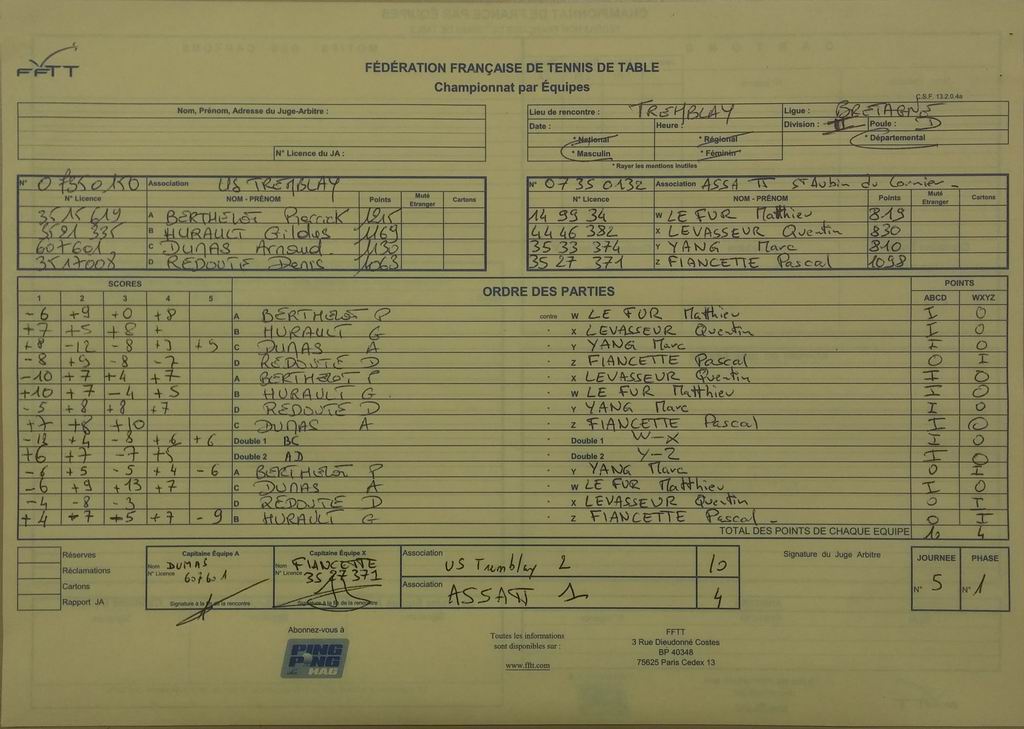 FFTT
FÉDÉRATION FRANÇAISE DE TENNIS DE TABLE
Championnat par Équipes
C.S.F. 13.2.0.4a
Nom, Prénom, Adresse du Juge-Arbitre :
N° Licence du JA :
Lieu de rencontre : TREMBLAY Ligue : BRETAGNE
Date : Heure : Division : Poule : D
* National * Régional * Départemental
* Masculin * Féminin
* Rayer les mentions inutiles
N° 07350150 Association US TREMBLAY
N° Licence NOM - PRÉNOM Points Muté Etranger Cartons
3515619 A BERTHELOT Pierrick 1215
3521 335 B HURAULT Gildas 1169
607601 C DUMAS Arnaud 1130
3517008 D REDOUTE Denis 1063
N° 07350132 Association ASSA TT St Aubin du Cormier
N° Licence NOM - PRÉNOM Points Muté Etranger Cartons
14 99 34 W LE FUR Matthieu 819
44 46 382 X LEVASSEUR Quentin 830
35 33 374 Y YANG Marc 810
35 27 371 Z FIANCETTE Pascal 1098
SCORES ORDRE DES PARTIES POINTS
1 2 3 4 5 ABCD WXYZ
-6 +9 +0 +8 A BERTHELOT P contre W LE FUR Matthieu I 0
+7 +5 +8 + B HURAULT G - X LEVASSEUR Quentin I 0
+8 -12 -8 +3 +9 C DUMAS A - Y YANG Marc I 0
-8 +9 -8 -7 D REDOUTE D - Z FIANCETTE Pascal 0 I
-10 +7 +4 +7 A BERTHELOT P - X LEVASSEUR Quentin I 0
+10 +7 -4 +5 B HURAULT G - W LE FUR Matthieu I 0
-5 +8 +8 +7 D REDOUTE D - Y YANG Marc I 0
+7 +8 +10 C DUMAS A - Z FIANCETTE Pascal I 0
-12 +4 -8 +6 +6 Double 1 BC - Double 1 W-X I 0
+6 +7 -7 +5 Double 2 AD - Double 2 Y-Z I 0
-6 +5 -5 +4 -6 A BERTHELOT P - Y YANG Marc 0 I
-6 +9 +13 +7 C DUMAS A - W LE FUR Matthieu I 0
-4 -8 -3 D REDOUTE D - X LEVASSEUR Quentin 0 I
+4 -7 +5 +7 -9 B HURAULT G - Z FIANCETTE Pascal 0 I
TOTAL DES POINTS DE CHAQUE EQUIPE 10 4
Réserves
Réclamations
Cartons
Rapport JA
Capitaine Équipe A
Nom DUMAS
N° Licence 607601
Signature à la fin de la rencontre
Capitaine Équipe X
Nom FIANCETTE
N° Licence 35 27 371
Signature à la fin de la rencontre
Association US Tremblay 2 10
Association ASSATT 1 4
Signature du Juge Arbitre
JOURNEE PHASE
N° 5 N° 1
Abonnez-vous à
PING PONG MAG
Toutes les informations
sont disponibles sur :
www.fftt.com
FFTT
3 Rue Dieudonné Costes
BP 40348
75625 Paris Cedex 13